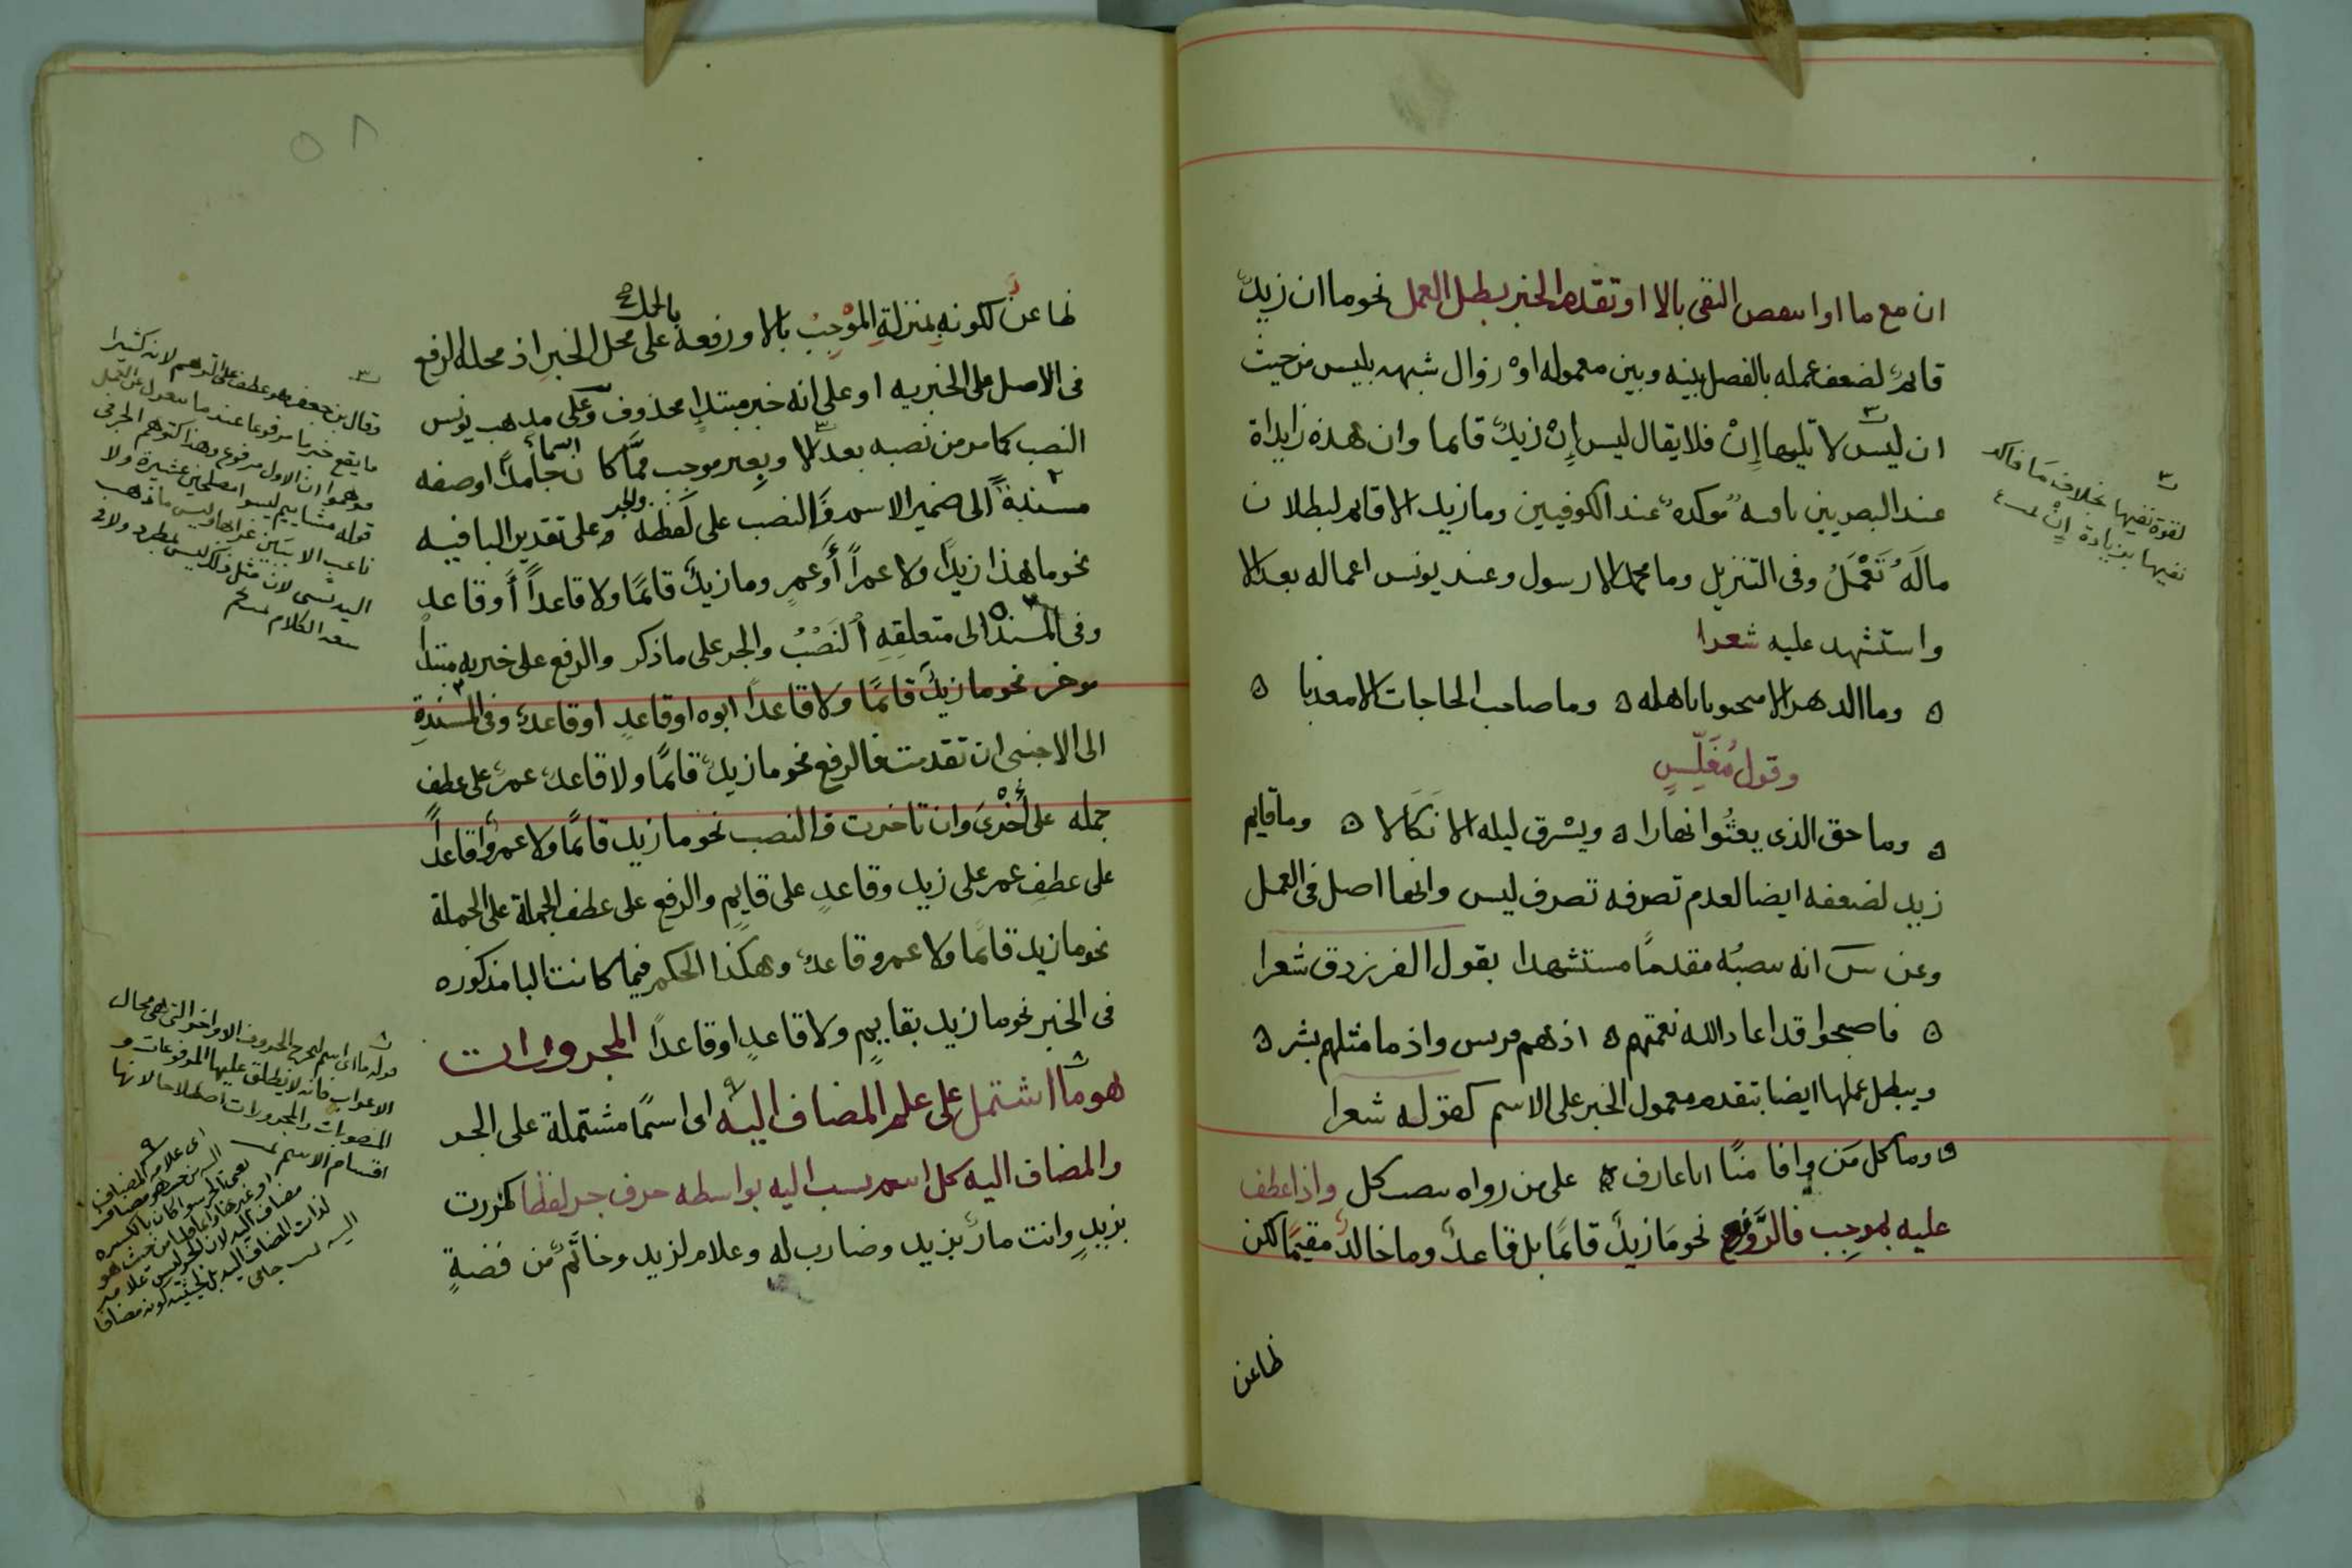 ان مع ما او انتقض النفى بالا او تقدم الخبر بطل العمل نحو ما ان زيدٌ
قائم لضعف عمله بالفصل بينه وبين معموله او زوال شبهه بليس من حيث
ان ليس لا تليها اِنْ فلا يقال ليس اِنْ زيدٌ قائما وان هذه زايداة
عند البصريين نافيه موكدهٌ عند الكوفيين وما زيد الا قائم لبطلان
مالَهُ تَعْمَلُ وفى التنزيل وما محمد الا رسول وعند يونس اعماله بعد الا
واستشهد عليه شعرا
ه وما الدهر الا منجنونا باهله ه وما صاحب الحاجات الا معذبا ه
وقول مُغَلِّسٍ
ه وما حق الذى يعثُوا نهارا ه ويسْرق ليله الا نَكَالا ه وما قايم
زيد لضعفه ايضا لعدم تصرفه تصرف ليس وانها اصل فى العمل
وعن س انه ينصبُه مقدمًا مستشهدا بقول الفرزدق شعرا
ه فاصبحوا قد اعاد الله نعمتهم ه اذ هم قريش واذ ما مثلهم بشر ه
ويبطل عملها ايضا بتقدم معمول الخبر على الاسم كقوله شعرا
ه وما كل مَن وافا منًا انا عارف ه على من رواه بنصب كل واذا عطف
عليه بموجِب فالرَّفع نحو مَا زيدٌ قائمًا بل قاعدٌ وما خالدٌ مقيمًا لكن
ظاعن
لقوة نفيها بخلاف مَا فاكد
نفيها بزيادة اِنْ
٥٨
ظاعن لكونهِ بمنزلةِ الموْجِبُ بالا ورفعه على محل الخبرِ اذ محله الرفع
بالحمل
فى الاصل على الخبريه او على انه خبر مبتدإٍ محذوف وعلى مذهب يونس
النصب كما مر من نصبه بعد الا وبغير موجب ممَّا كان اسماً جامدًا او صفه
مسندةً الى ضمير الاسم فَالنصب على لفظه والجر وعلى تقدير البا فيه
نحو ما هذا زيدًا ولا عمراً أَو عمرٍ وما زيدٌ قائمًا ولا قاعداً أَو قاعد
وفى المسنده الى متعلقِهِ اَلنَصْبُ والجر على ما ذكر والرفع على خبريه مبتدأ
موخر نحو ما زيدٌ قائمًا ولا قاعدًا ابوه او قاعدٍ او قاعدٌ وفى المسندةِ
الى الاجنبى ان تقدمت فالرفع نحو ما زيدٌ قائمًا ولا قاعدٌ عمرٌ على عطف
جمله على أُخْرىَ وان تاخرت فالنصب نحو ما زيد قائمًا ولا عمرواً قاعداً
على عطفِ عمر على زيد وقاعدٍ على قايمٍ والرفع على عطف الجملة على الجملة
نحو ما زيد قائمًا ولا عمرو قاعدٌ وهكذا الحكم فيما كانت البا مذكوره
فى الخبر نحو ما زيد بقايمٍ ولا قاعدٍ او قاعداً المجرورات
هو ما اشتمل على علم المضاف اليه اى اسمًا مشتملة على الجر
والمضاف اليه كل اسم نسب اليه بواسطه حرف جر لفظا كمررت
بزيدٍ وانت مارٌ بزيد وضارب له وغلام لزيد وخاتمٌ من فضةٍ
وقال بن جعفر هو عطف على التوهم لانه كثيرا
ما يقع خبر ما مرفوعا عند ما
ان الاول مرفوع وهذا كتوهم الجر فى
قوله مشاييم ليسوا مصلحين عشيرة ولا
ناعب الا ببَين غرابها وليس ما ذهب
اليه بشى لان مثل ذلك ليس بمطرد ولا فى
سعه الكلام
قوله ما اى اسم ليخرج الحروف الاواخر التى هى محال
الاعراب فانه لا يطلق عليها المرفوعات و
المنصوبات والمجرورات اصطلاحا لانها
اقسام الاسم
اى علامه المضاف
اليه من حيث هو مضاف
يعنى الجر سوا كان بالكسره
مضاف اليه لان الجر ليس علامه
لذات المضاف اليه بل لحيثيه كونه مضافا
اليه جامى